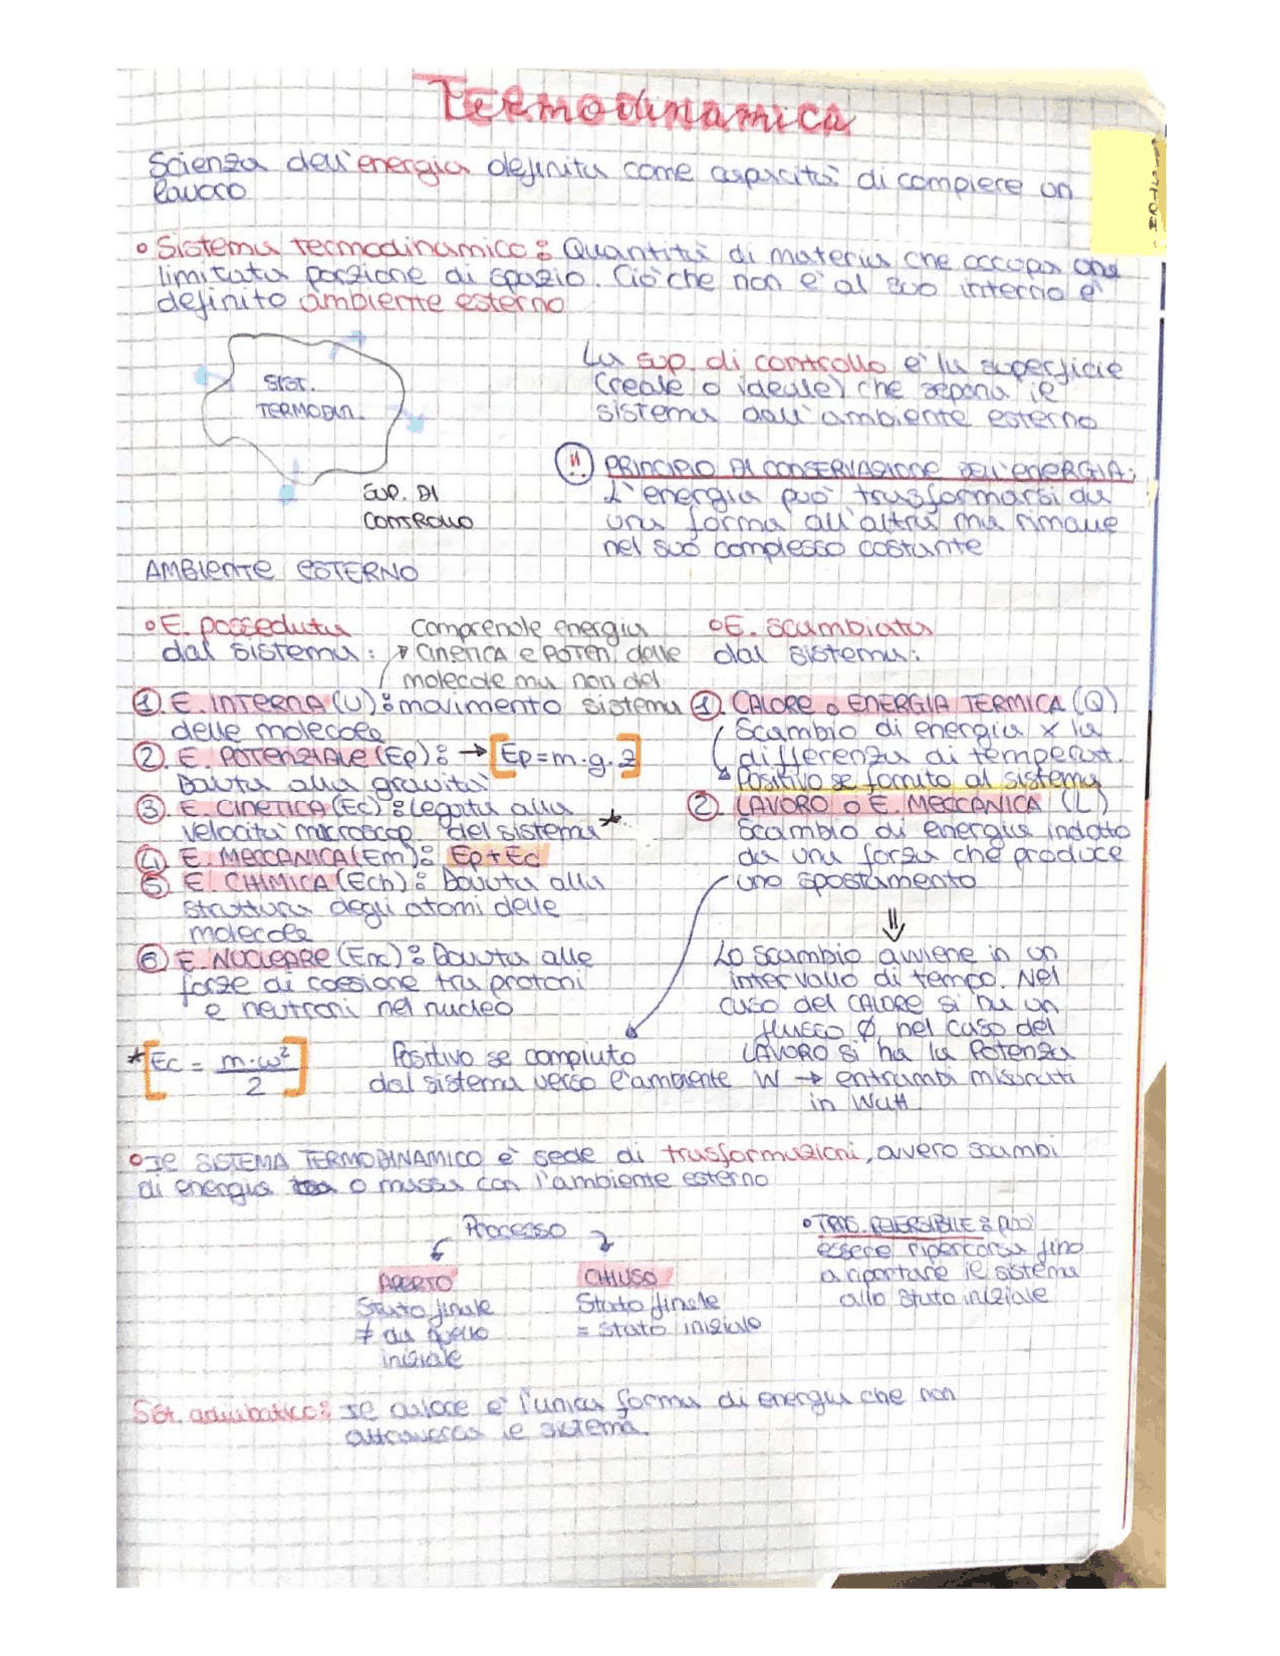 Termodinamica
Scienza dell'energia definita come capacità di compiere un
lavoro
• Sistema termodinamico: Quantità di materia che occupa una
limitata porzione di spazio. Ciò che non è al suo interno è
definito ambiente esterno
SIST.
TERMODIN.
SUP. DI
CONTROLLO
AMBIENTE ESTERNO
La sup. di controllo è la superficie
(reale o ideale) che separa il
sistema dall'ambiente esterno
!! PRINCIPIO DI CONSERVAZIONE DELL'ENERGIA:
L'energia può trasformarsi da
una forma all'altra ma rimane
nel suo complesso costante
• E. posseduta
dal sistema:
comprende energia
CINETICA e POTEN. delle
molecole ma non del
sistema
① E. INTERNA (U): movimento
delle molecole
② E. POTENZIALE (Ep): → [Ep = m·g·z]
Dovuta alla gravità
③ E. CINETICA (Ec): Legata alla
velocità macroscop. del sistema *
④ E. MECCANICA (Em): Ep + Ec
⑤ E. CHIMICA (Ech): Dovuta alla
struttura degli atomi delle
molecole
⑥ E. NUCLEARE (En): Dovuta alle
forze di coesione tra protoni
e neutroni nel nucleo
* [Ec = m·w²/2]
• E. scambiata
dal sistema:
① CALORE o ENERGIA TERMICA (Q)
Scambio di energia x la
differenza di temperat.
Positivo se fornito al sistema
② LAVORO o E. MECCANICA (L)
Scambio di energia indotto
da una forza che produce
uno spostamento
Positivo se compiuto
dal sistema verso l'ambiente
⇓
Lo scambio avviene in un
intervallo di tempo. Nel
caso del CALORE si ha un
flusso Φ, nel caso del
LAVORO si ha la Potenza
W → entrambi misurati
in Watt
• Il SISTEMA TERMODINAMICO è sede di trasformazioni, ovvero scambi
di energia o massa con l'ambiente esterno
Processo
APERTO
Stato finale
≠ da quello
iniziale
CHIUSO
Stato finale
= stato iniziale
• TRAS. REVERSIBILE: può
essere ripercorsa fino
a riportare il sistema
allo stato iniziale
Sist. adiabatico: il calore è l'unica forma di energia che non
attraversa il sistema.